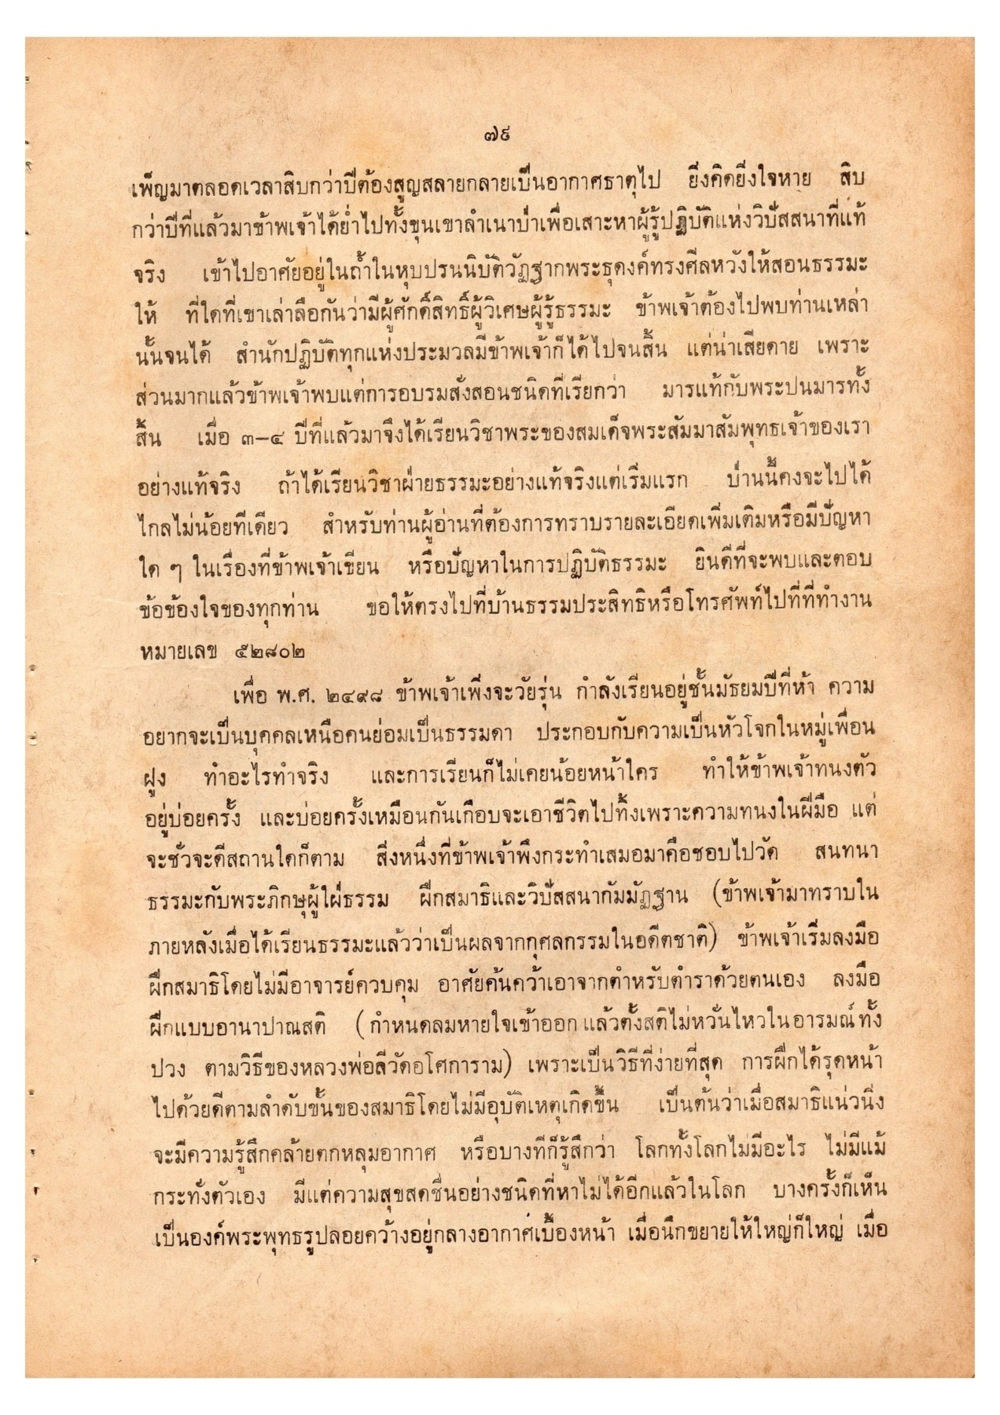 ๗๙
เพ็ญมาตลอดเวลาสิบกว่าปีต้องสูญสลายกลายเป็นอากาศธาตุไป ยิ่งคิดยิ่งใจหาย สิบ
กว่าปีที่แล้วมาข้าพเจ้าได้ย่ำไปทั้งขุนเขาลำเนาป่าเพื่อเสาะหาผู้รู้ปฏิบัติแห่งวิปัสสนาที่แท้
จริง เข้าไปอาศัยอยู่ในถ้ำในหุบปรนนิบัติวัฏฐากพระธุดงค์ทรงศีลหวังให้สอนธรรมะ
ให้ ที่ใดที่เขาเล่าลือกันว่ามีผู้ศักดิ์สิทธิ์ผู้วิเศษผู้รู้ธรรมะ ข้าพเจ้าต้องไปพบท่านเหล่า
นั้นจนได้ สำนักปฏิบัติทุกแห่งประมวลมีข้าพเจ้าก็ได้ไปจนสิ้น แต่น่าเสียดาย เพราะ
ส่วนมากแล้วข้าพเจ้าพบแต่การอบรมสั่งสอนชนิดที่เรียกว่า มารแท้กับพระปนมารทั้ง
สิ้น เมื่อ ๓–๔ ปีที่แล้วมาจึงได้เรียนวิชาพระของสมเด็จพระสัมมาสัมพุทธเจ้าของเรา
อย่างแท้จริง ถ้าได้เรียนวิชาฝ่ายธรรมะอย่างแท้จริงแต่เริ่มแรก ป่านนี้คงจะไปได้
ไกลไม่น้อยทีเดียว สำหรับท่านผู้อ่านที่ต้องการทราบรายละเอียดเพิ่มเติมหรือมีปัญหา
ใด ๆ ในเรื่องที่ข้าพเจ้าเขียน หรือปัญหาในการปฏิบัติธรรมะ ยินดีที่จะพบและตอบ
ข้อข้องใจของทุกท่าน ขอให้ตรงไปที่บ้านธรรมประสิทธิหรือโทรศัพท์ไปที่ที่ทำงาน
หมายเลข ๕๒๘๐๒
เพื่อ พ.ศ. ๒๔๙๘ ข้าพเจ้าเพิ่งจะวัยรุ่น กำลังเรียนอยู่ชั้นมัธยมปีที่ห้า ความ
อยากจะเป็นบุคคลเหนือคนย่อมเป็นธรรมดา ประกอบกับความเป็นหัวโจกในหมู่เพื่อน
ฝูง ทำอะไรทำจริง และการเรียนก็ไม่เคยน้อยหน้าใคร ทำให้ข้าพเจ้าทนงตัว
อยู่บ่อยครั้ง และบ่อยครั้งเหมือนกันเกือบจะเอาชีวิตไปทิ้งเพราะความทนงในฝีมือ แต่
จะชั่วจะดีสถานใดก็ตาม สิ่งหนึ่งที่ข้าพเจ้าพึงกระทำเสมอมาคือชอบไปวัด สนทนา
ธรรมะกับพระภิกษุผู้ใฝ่ธรรม ฝึกสมาธิและวิปัสสนากัมมัฏฐาน (ข้าพเจ้ามาทราบใน
ภายหลังเมื่อได้เรียนธรรมะแล้วว่าเป็นผลจากกุศลกรรมในอดีตชาติ) ข้าพเจ้าเริ่มลงมือ
ฝึกสมาธิโดยไม่มีอาจารย์ควบคุม อาศัยค้นคว้าเอาจากตำหรับตำราด้วยตนเอง ลงมือ
ฝึกแบบอานาปาณสติ (กำหนดลมหายใจเข้าออก แล้วตั้งสติไม่หวั่นไหวในอารมณ์ทั้ง
ปวง ตามวิธีของหลวงพ่อลีวัดอโศการาม) เพราะเป็นวิธีที่ง่ายที่สุด การฝึกได้รุดหน้า
ไปด้วยดีตามลำดับขั้นของสมาธิโดยไม่มีอุบัติเหตุเกิดขึ้น เป็นต้นว่าเมื่อสมาธิแน่วนิ่ง
จะมีความรู้สึกคล้ายตกหลุมอากาศ หรือบางทีก็รู้สึกว่า โลกทั้งโลกไม่มีอะไร ไม่มีแม้
กระทั่งตัวเอง มีแต่ความสุขสดชื่นอย่างชนิดที่หาไม่ได้อีกแล้วในโลก บางครั้งก็เห็น
เป็นองค์พระพุทธรูปลอยคว้างอยู่กลางอากาศเบื้องหน้า เมื่อนึกขยายให้ใหญ่ก็ใหญ่ เมื่อ